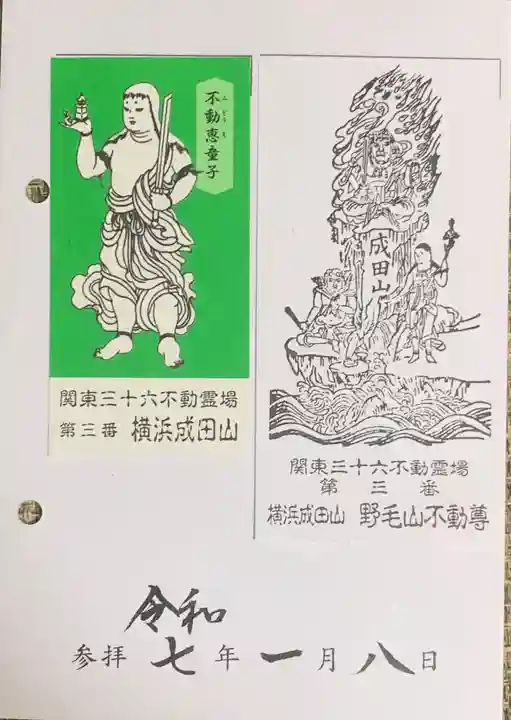 不動恵童子
ふどうえ
関東三十六不動霊場
第三番 横浜成田山
成田山
関東三十六不動霊場
第三番
横浜成田山 野毛山不動尊
令和
参拝 七年一月八日